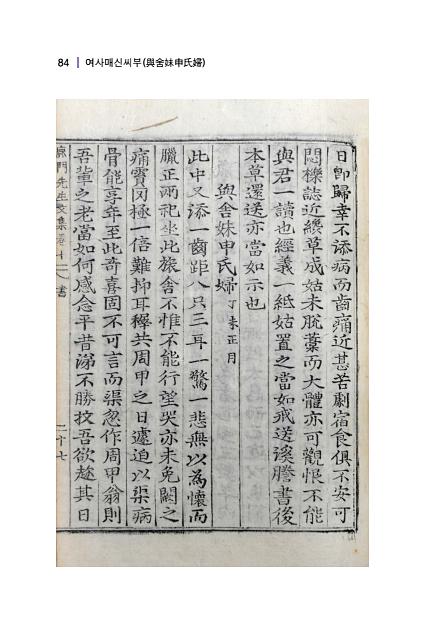 84 | 여사매신씨부(與舍妹申氏婦)
日卽歸幸不添病而齒痛近甚苦劇宿食俱不安可
悶櫟誌近纔草成姑未脫藁而大體亦可觀恨不能
與君一讀也經義一紙姑置之當如戒送溪謄書後
本草還送亦當如示也
與舍妹申氏婦 丁未正月
此中又添一齒距八只三耳一驚一悲無以為懷而
臘正兩祀坐此旅舍不惟不能行望哭亦未免闕之
痛實罔極一倍難抑耳稺共周甲之日遽迫以渠病
骨能享年至此奇喜固不可言而渠忽作周甲翁則
吾輩之老當如何感念平昔涕不勝抆吾欲趂其日
先生文集卷十二 書
二十七